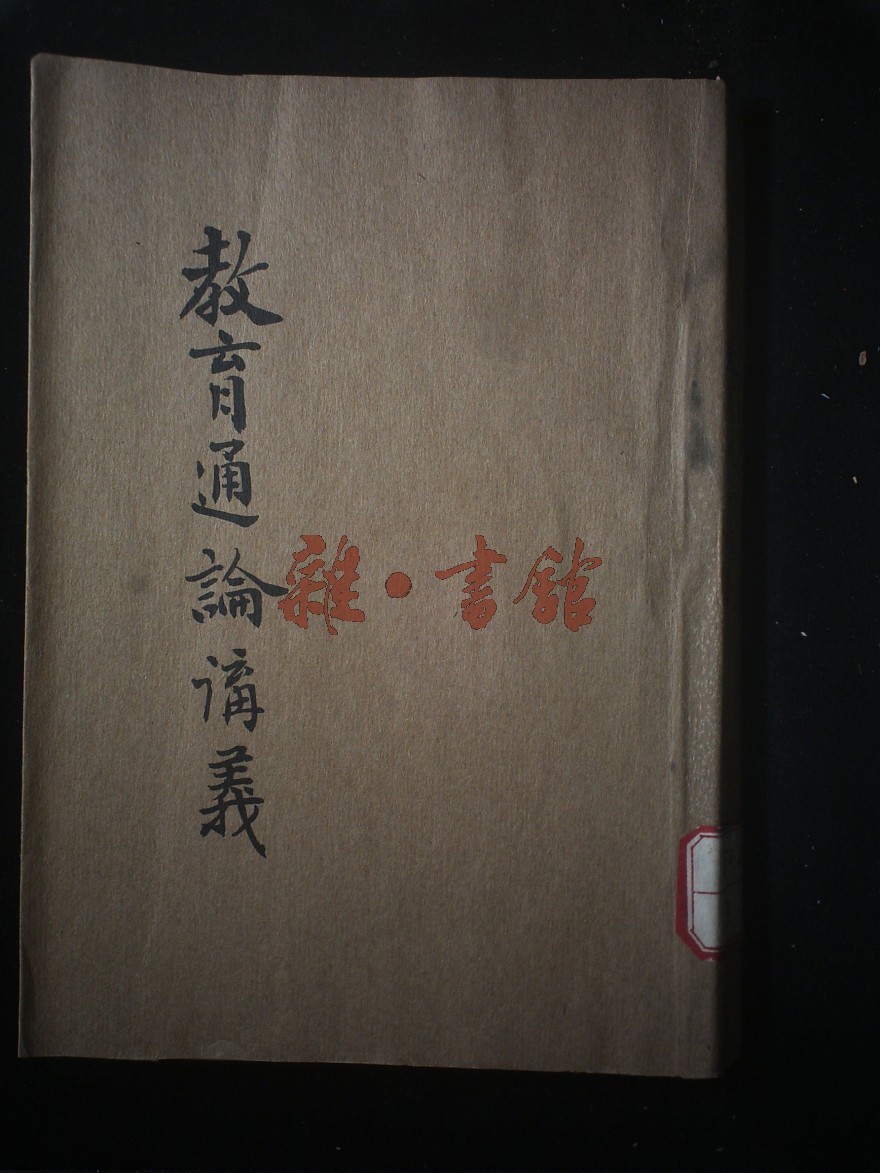 教育通論講義
雜·書館